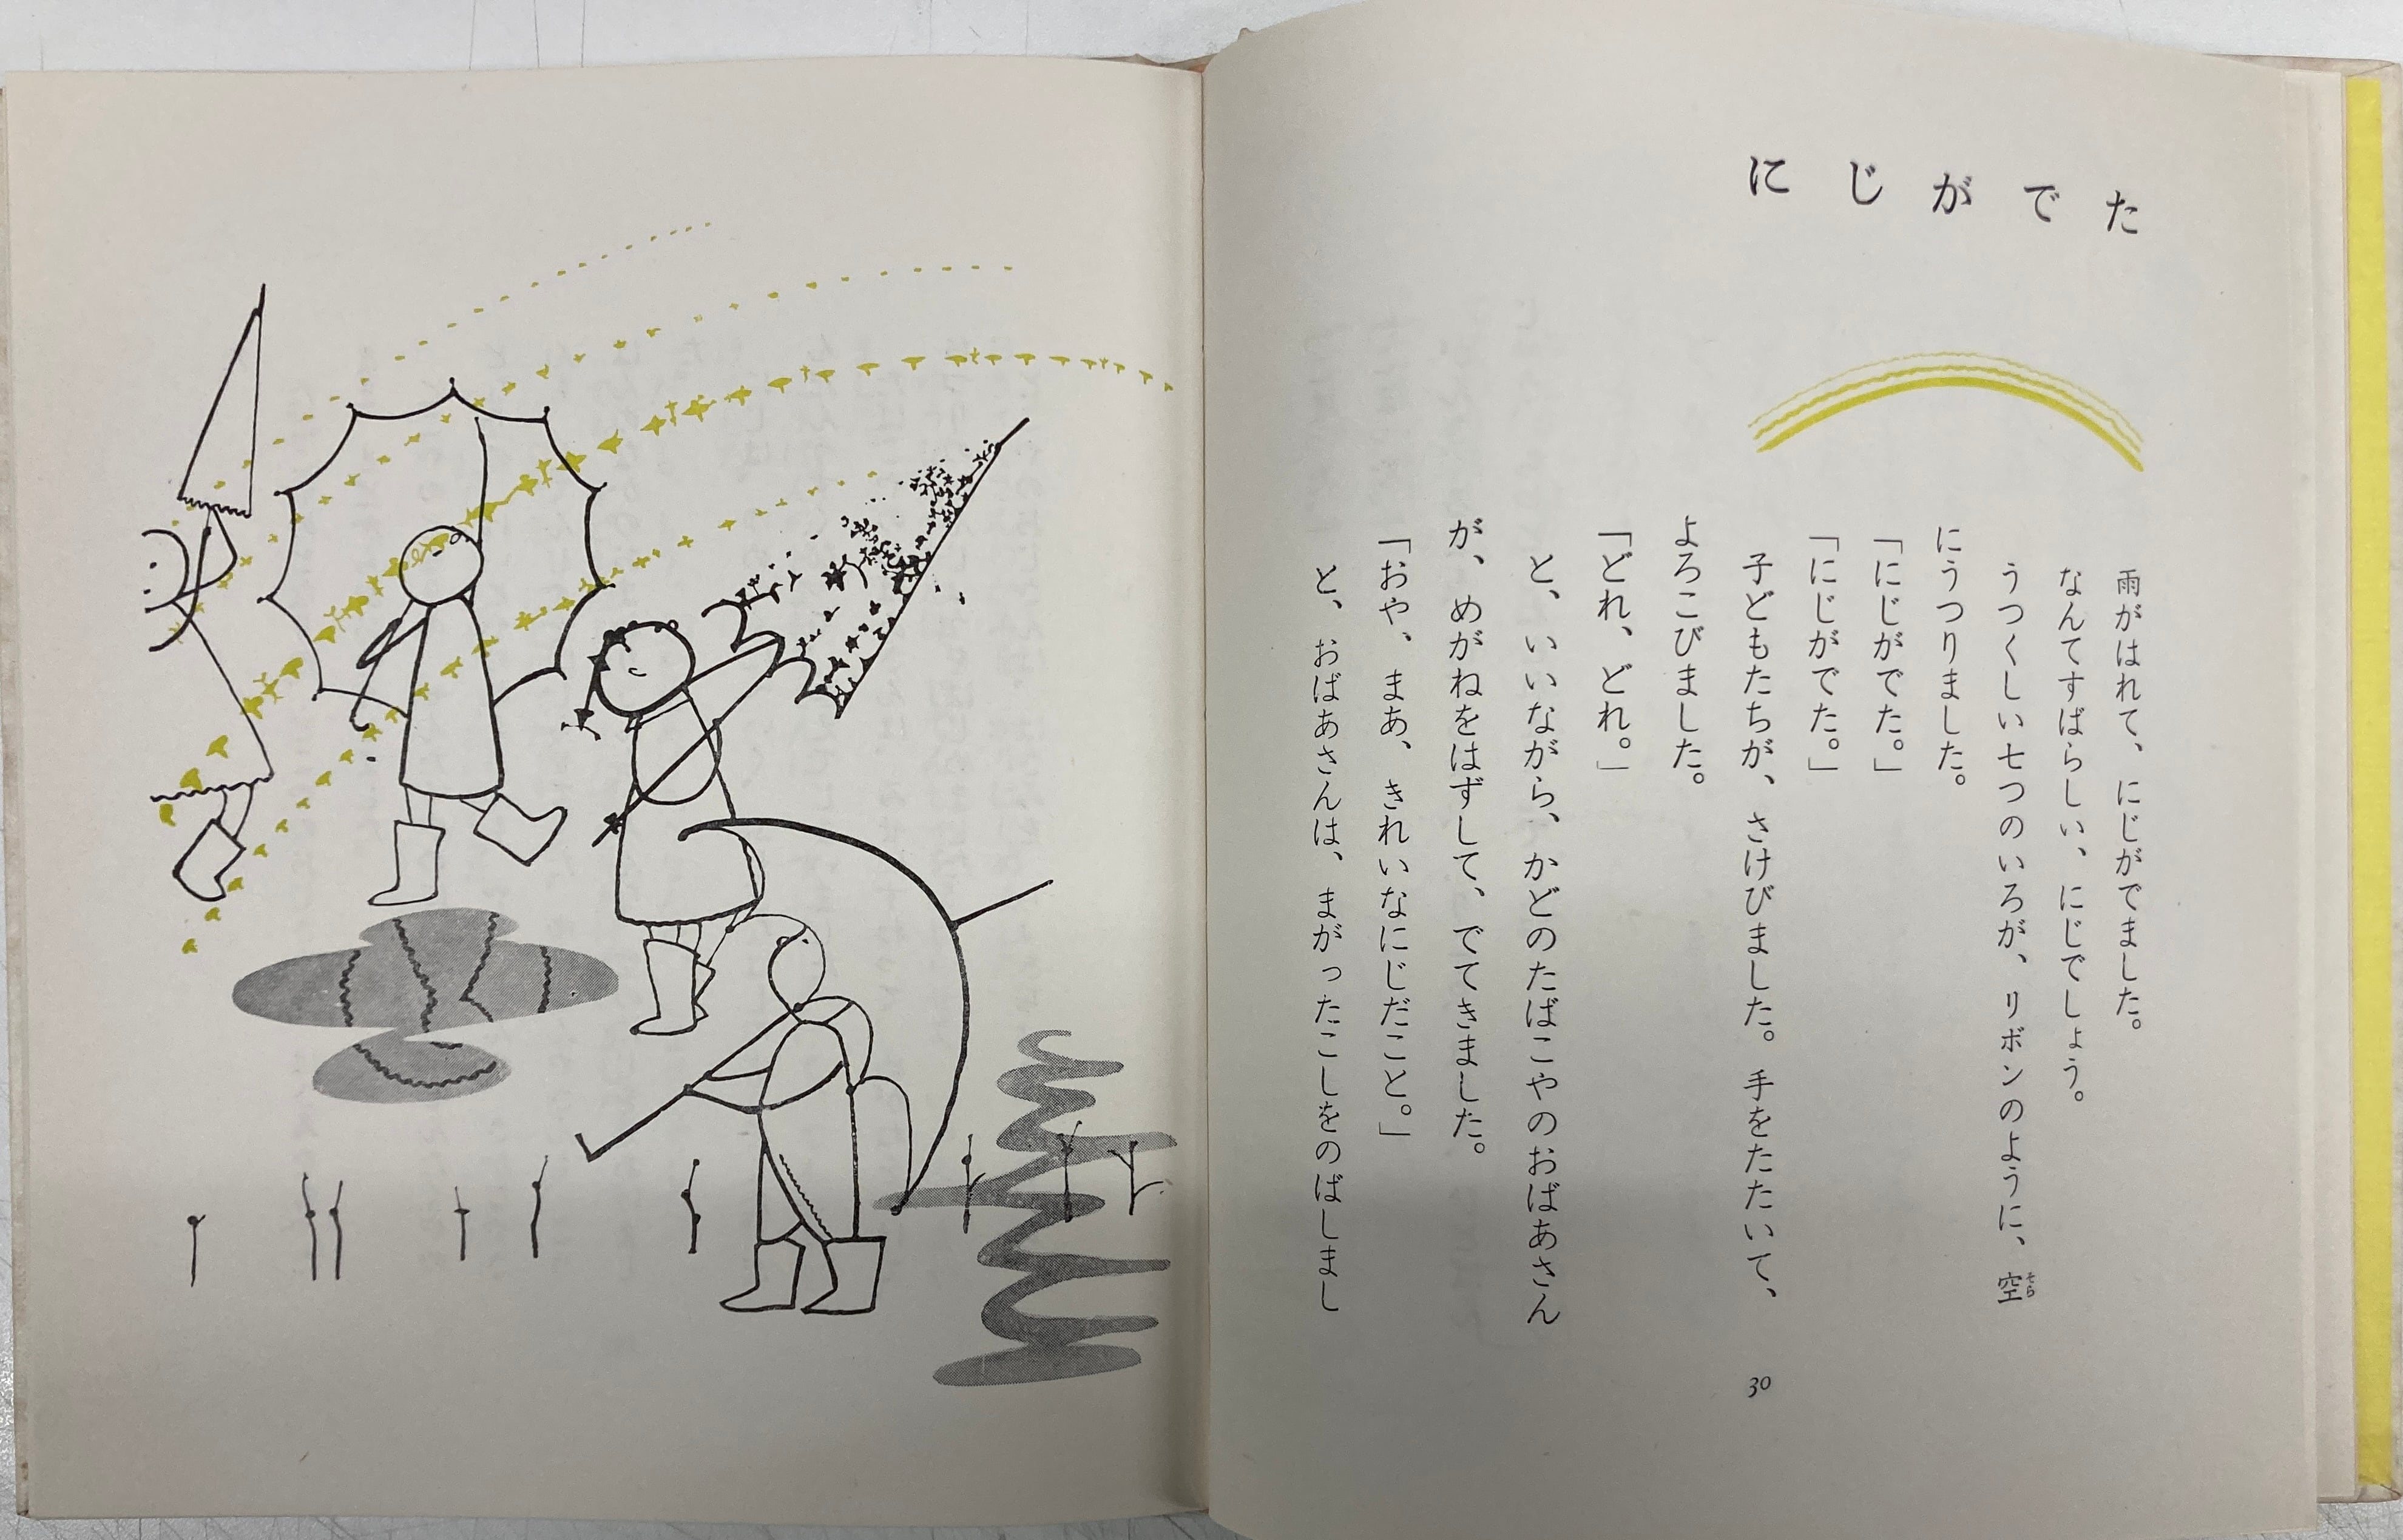 にじがでた
雨がはれて、にじがでました。
なんてすばらしい、にじでしょう。
うつくしい七つのいろが、リボンのように、空
そら
にうつりました。
「にじがでた。」
「にじがでた。」
子どもたちが、さけびました。手をたたいて、
よろこびました。
「どれ、どれ。」
と、いいながら、かどのたばこやのおばあさん
が、めがねをはずして、でてきました。
「おや、まあ、きれいなにじだこと。」
と、おばあさんは、まがったこしをのばしまし
30